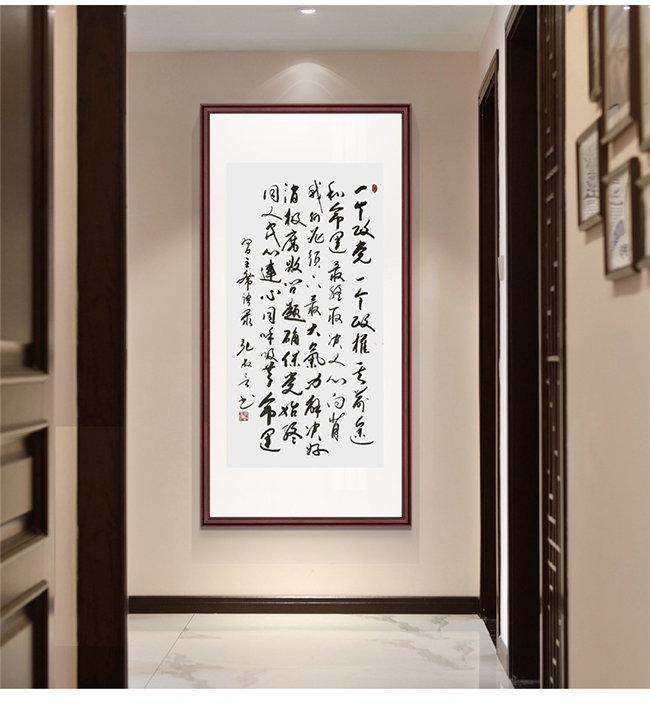 一个政党一个政权其前途
和命运最终取决人心向背
我们必须以最大气力解决好
消极腐败问题确保党始终
同人民心连心同呼吸共命运
习主席语录 书